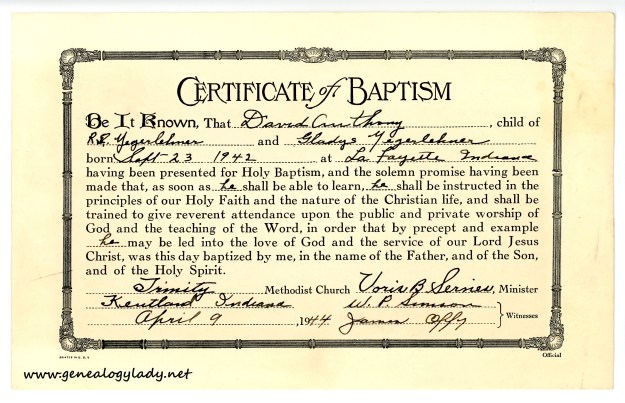 CERTIFICATE of BAPTISM
Be It Known, That David Anthony, child of
R.E. Yegerlehner and Gladys Yegerlehner
born Sept 23 1942 at La Fayette Indiana
having been presented for Holy Baptism, and the solemn promise having been
made that, as soon as he shall be able to learn, he shall be instructed in the
principles of our Holy Faith and the nature of the Christian life, and shall be
trained to give reverent attendance upon the public and private worship of
God and the teaching of the Word, in order that by precept and example
he may be led into the love of God and the service of our Lord Jesus
Christ, was this day baptized by me, in the name of the Father, and of the Son,
and of the Holy Spirit.
Trinity Methodist Church Voris B. Servies, Minister
Kentland Indiana W. P. Simson
April 9, 1944 James Witnesses
Official
www.genealogylady.net